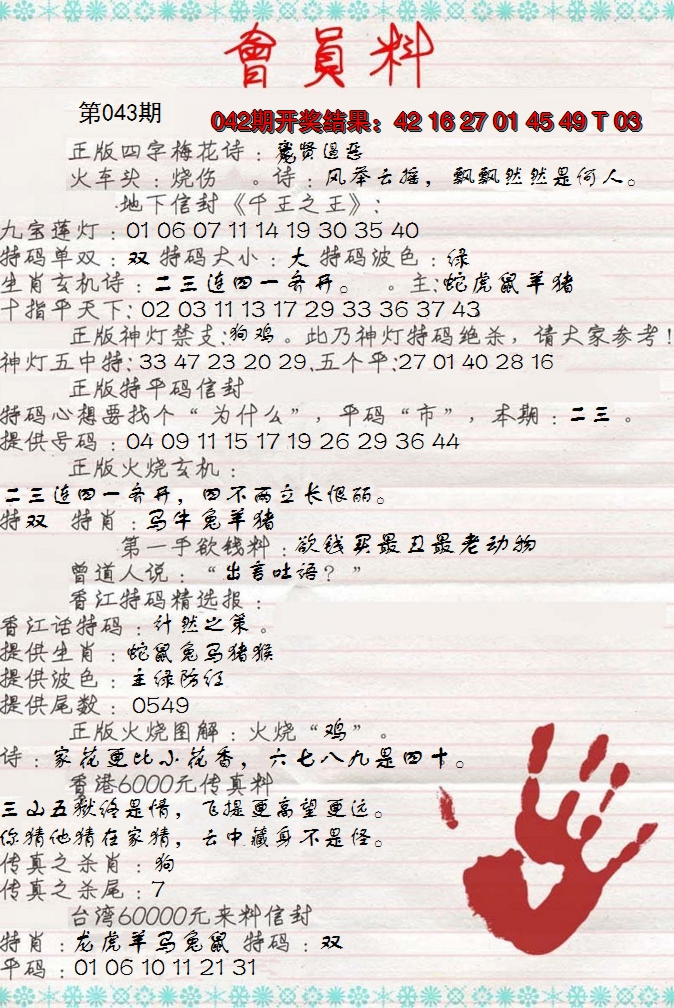 會員料
第043期
042期开奖结果：42 16 27 01 45 49 T 03
正版四字梅花诗：蔑贤遏恶
火车头：烧伤 。诗：风举云摇，飘飘然然是何人。
地下信封《千王之王》：
九宝莲灯：01 06 07 11 14 19 30 35 40
特码单双：双 特码大小：大 特码波色：绿
生肖玄机诗：二三连四一齐开。 。主:蛇虎鼠羊猪
十指平天下: 02 03 11 13 17 29 33 36 37 43
正版神灯禁支:狗鸡。此乃神灯特码绝杀，请大家参考!
神灯五中特: 33 47 23 20 29.五个平:27 01 40 28 16
正版特平码信封
特码心想要找个“为什么”，平码“市”，本期：二三 。
提供号码：04 09 11 15 17 19 26 29 36 44
正版火烧玄机：
二三连四一齐开，四不两立长恨丽。
特双 特肖：马牛兔羊猪
第一手欲钱料：欲钱买最丑最老动物
曾道人说：“出言吐语？”
香江特码精选报：
香江话特码：计然之策。
提供生肖：蛇鼠兔马猪猴
提供波色：主绿防红
提供尾数： 0549
正版火烧图解：火烧“鸡”。
诗：家花更比小花香，六七八九是四十。
香港6000元传真料
三山五狱终是情，飞提更高望更远。
你猜他猜在家猜，云中藏身不是怪。
传真之杀肖：狗
传真之杀尾：7
台湾60000元来料信封
特肖：龙虎羊马兔鼠 特码：双
平码：01 06 10 11 21 31